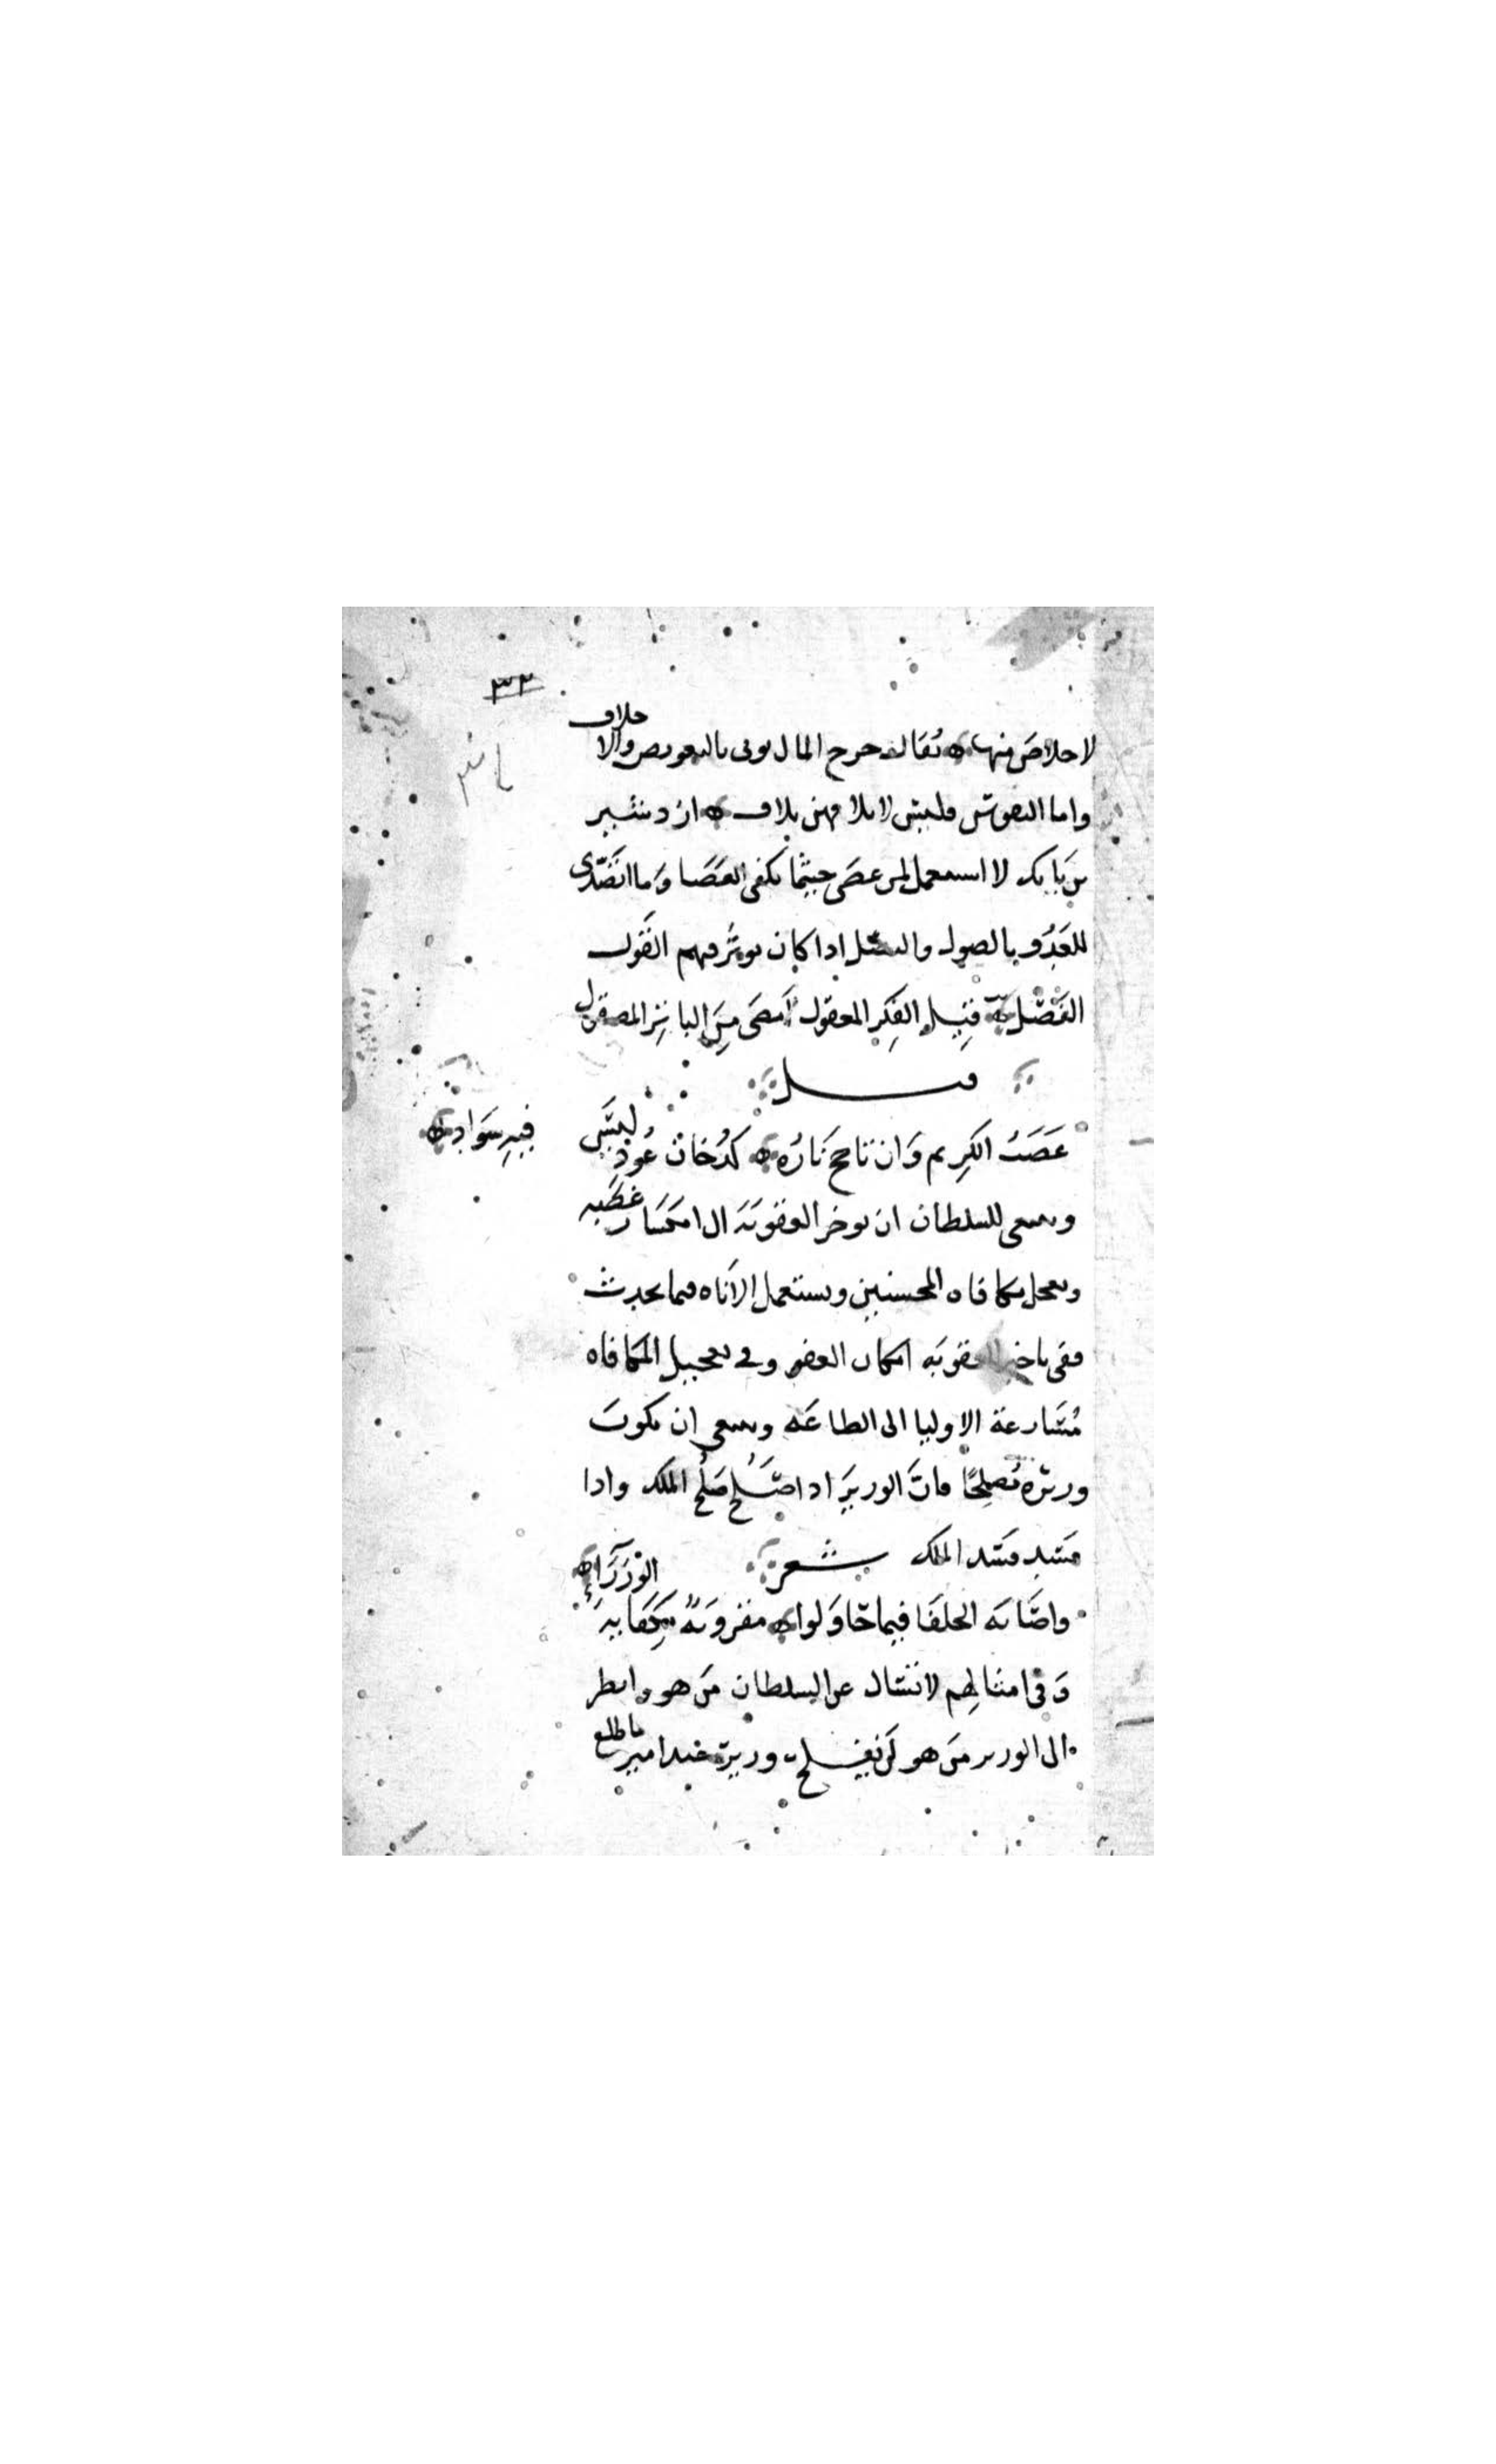 ٣٢
لا خلاص منها ه يقال جرح المال يوسى بالتعويض والاخلاف
واما النفوس فليس لاتلافهن تلاف ه ازدشير
بن بابك لا استعمل لمن عصى حيثما يكفى العصا وما اتصدى
للعدو بالصول والقتل اذا كان يوثر فيهم القول
الفصل ه قيل الفكر المعقول امضى من الباتر المصقول
قيل
غضب الكريم وان تاجج ناره ه كدخان عود ليس فيه سواد ه
وينبغى للسلطان ان يوخر العقوبة الى انحسار غضبه
ويعجل مكافاه المحسنين ويستعمل الاناه فيما يحدث
ففى تاخير العقوبه امكان العفو وفى تعجيل المكافاه
مسارعة الاوليا الى الطاعه وينبغى ان يكون
وزيره مصلحا فان الوزير اذا صلح صلح الملك واذا
فسد فسد الملك شعر
واصابة الخلفا فيما حاولوا ه مقرونة بكفاية الوزراء ه
وفى امثالهم لا تسال عن السلطان من هو وانظر
الى الوزير من هو لن يفلح وزير عند امير